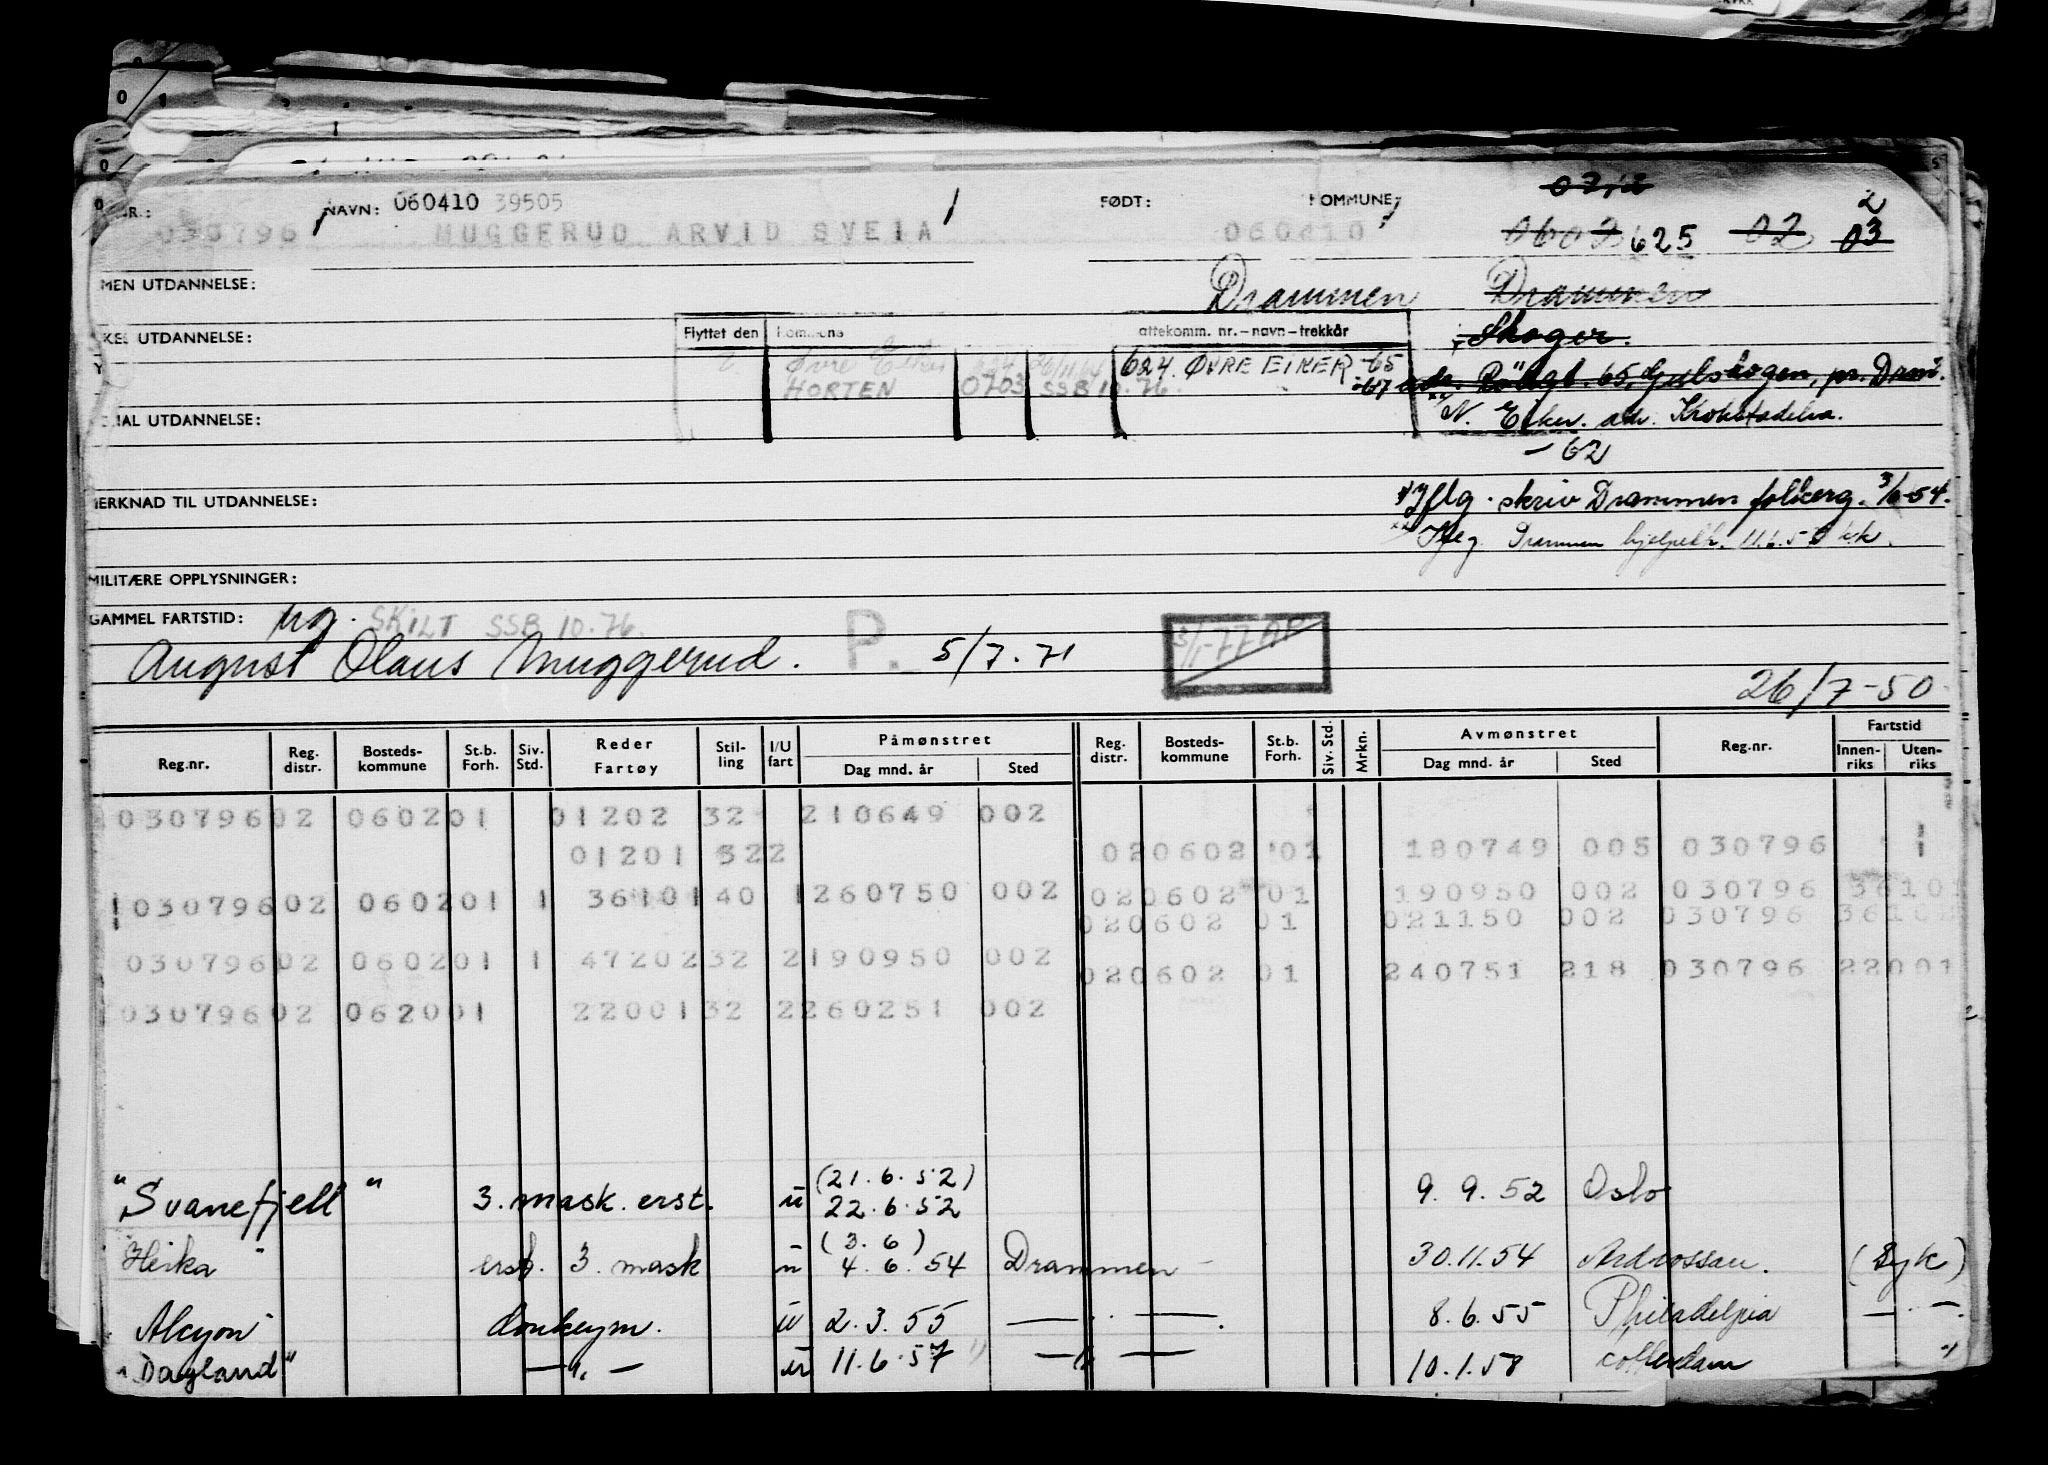 NR.: NAVN: 060410 39505 FØDT: KOMMUNE:
030796 MUGGERUD ARVID SVEIA 060410 0602 625 02 03 2
MEN UTDANNELSE: Drammen Drammen
UTDANNELSE: Flyttet den Kommune attekomm. nr.-navn-trekkår Skoger.
Øvre Eiker 624. ØVRE EIKER -65
HORTEN 0703 SSB 10.76. -67 adr. 65, Gulskogen, pr. Dram.
IAL UTDANNELSE: N. Eiker. adr. Krokstadelva.
- 62
MERKNAD TIL UTDANNELSE: Iflg. skriv Drammen folkereg. 3/6-54.
Iflg. Drammen 11.6.5
MILITÆRE OPPLYSNINGER:
GAMMEL FARTSTID: ug. SKILT SSB 10.76.
August Olaus Muggerud. P. 5/7.71 3/1-77 AP
26/7-50
Reg.nr. Reg. distr. Bosteds- kommune St.b. Forh. Siv. Std. Reder Fartøy Stil- ling I/U fart Påmønstret Dag mnd. år Sted Reg. distr. Bosteds- kommune St.b. Forh. Siv. Std. Mrkn. Avmønstret Dag mnd. år Sted Reg.nr. Fartstid Innen- riks Uten- riks
030796 02 0602 01 01202 32 210649 002
01201 322 020602 01 180749 005 030796 1
030796 02 0602 01 1 36101 40 1 260750 002 020602 01 190950 002 030796 36101
020602 01 021150 002 030796 36102
030796 02 0602 01 1 47202 32 2 190950 002
020602 01 240751 218 030796 22001
030796 02 0620 01 22001 32 2 260251 002
(21.6.52)
"Svanefjell" 3. mask. erst. u 22.6.52 9.9.52 Oslo
(3.6)
Heika erst. 3. mask u 4.6.54 Drammen 30.11.54 Ardrossan. (Syk)
Alcyon donkeym. u 2.3.55 — " — 8.6.55 Philadelpia — " —
"Dagland" — " — u 11.6.57 — " — 10.1.58